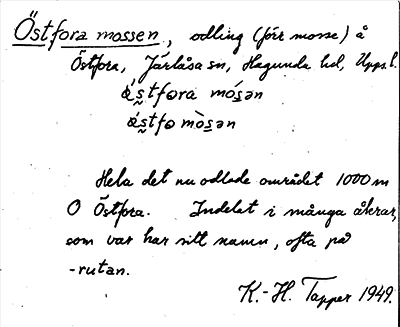 Östfora mossen, odling (förr mosse) å
Östfora, Järlåsa sn, Hagunda hd, Upps. l.
fora mósən
fo mòsən
Hela det nu odlade området 1000 m
O Östfora. Indelat i många åkrar,
som var har sitt namn, ofta på
-rutan.
K.-H. Tapper 1949.